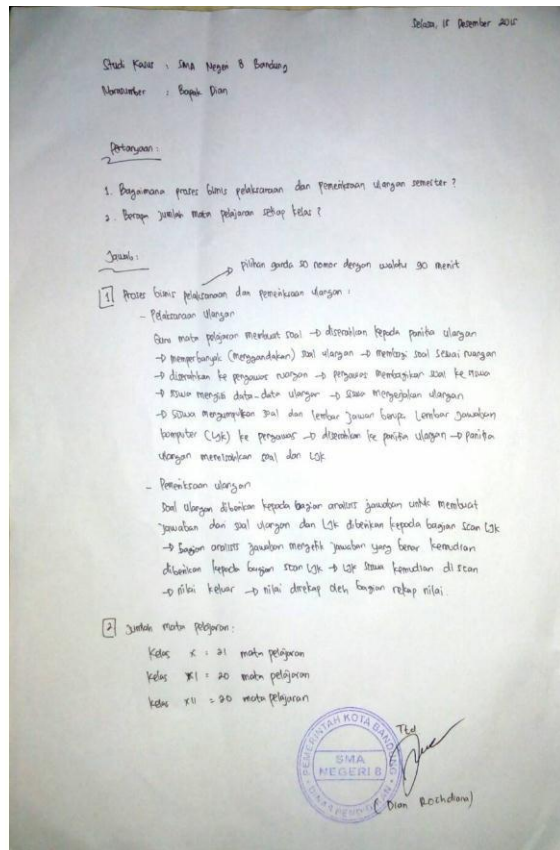 Selasa, 15 Desember 2015
Studi Kasus : SMA Negeri 8 Bandung
Narasumber : Bapak Dian
Pertanyaan :
1. Bagaimana proses bisnis pelaksanaan dan pemeriksaan ulangan semester ?
2. Berapa jumlah mata pelajaran setiap kelas ?
Jawab :
pilihan ganda 50 nomor dengan waktu 90 menit
1 Proses bisnis pelaksanaan dan pemeriksaan ulangan :
- Pelaksanaan Ulangan
Guru mata pelajaran membuat soal → diserahkan kepada panitia ulangan
→ memperbanyak (menggandakan) soal ulangan → membagi soal sesuai ruangan
→ diserahkan ke pengawas ruangan → pengawas membagikan soal ke siswa
→ siswa mengisi data-data ulangan → siswa mengerjakan ulangan
→ siswa mengumpulkan soal dan lembar jawan berupa Lembar Jawaban
komputer (LJK) ke pengawas → diserahkan ke panitia ulangan → panitia
ulangan memisahkan soal dan LJK
- Pemeriksaan ulangan
Soal ulangan diberikan kepada bagian analisis jawaban untuk membuat
jawaban dari soal ulangan dan LJK diberikan kepada bagian scan LJK
→ bagian analisis jawaban mengetik jawaban yang benar kemudian
diberikan kepada bagian scan LJK → LJK siswa kemudian di scan
→ nilai keluar → nilai direkap oleh bagian rekap nilai.
2 Jumlah mata pelajaran :
Kelas X : 21 mata pelajaran
Kelas XI = 20 mata pelajaran
Kelas XII = 20 mata pelajaran
Ttd
PEMERINTAH KOTA BANDUNG
SMA
NEGERI 8
DINAS PENDIDIKAN
(Dian Rochdiana)